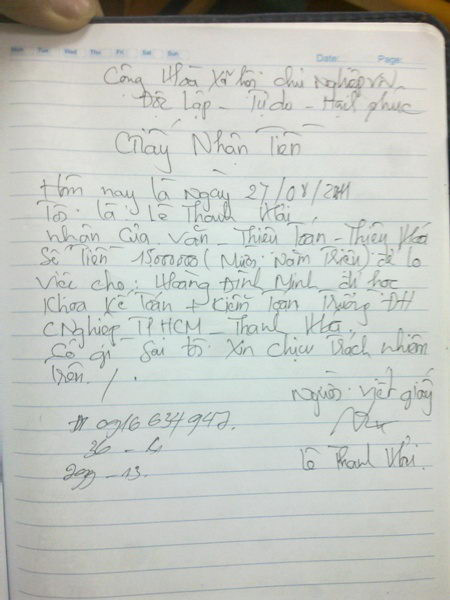 Mon Tue Wed Thu Fri Sat Sun Date: Page:
Cộng Hoà Xã hội chủ Nghiệp VN
Độc Lập - Tự do - Hạnh phúc
Giấy Nhận Tiền
Hôm nay là Ngày 27/08/2011
Tôi là Lê Thanh Khải,
nhận của văn - Thiệu Toán - Thiệu Hoá
Số Tiền 15000000 (Mười Năm Triệu) để lo
việc cho: Hoàng Đình Minh đi học
Khoa Kế Toán + Kiểm Toán Trường ĐH
CNghiệp TPHCM - Thanh Hoá.
Có gì Sai tôi Xin chịu Trách nhiệm
Trên./.
Người viết giấy
0916 634 942.
36 - 4
Lê Thanh Khải.
299 - 13.